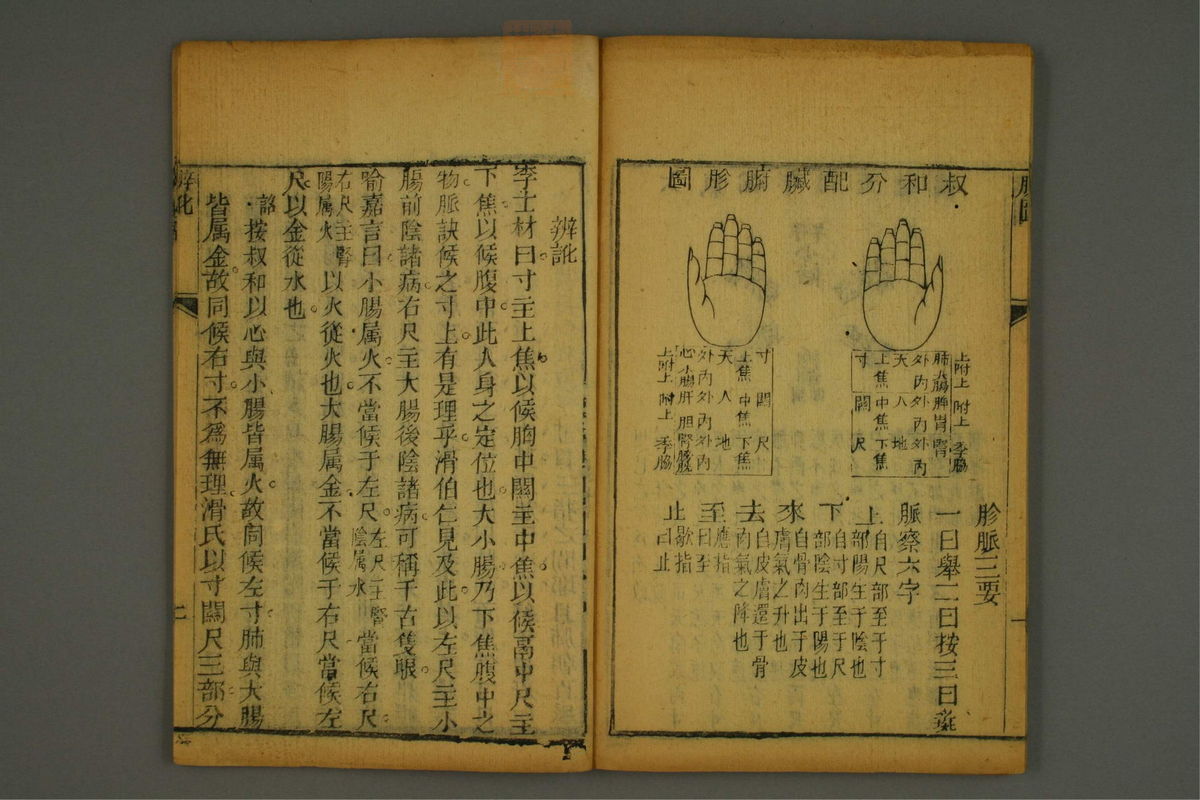 叔和分配臟腑形圖
上附上 附上 季脇
肺大腸脾胃腎
外內外內外內
天人地
上焦中焦下焦
寸關尺
寸關尺
上焦中焦下焦
天人地
外內外內外內
心小腸肝胆腎
上附上 附上 季脇
胗脈三要
一曰舉二曰按三曰尋
脈察六字
上自尺部至于寸部陽生于陰也
下自寸部至于尺部陰生于陽也
來自骨肉出于皮膚氣之升也
去自皮膚還于骨肉氣之降也
至應指曰至
止歇指曰止
辨訛
李士材曰寸主上焦以候胸中關主中焦以候鬲中尺主
下焦以候腹中此人身之定位也大小腸乃下焦腹中之
物脈訣候之寸上有是理乎滑伯仁見及此以左尺主小
腸前陰諸病右尺主大腸後陰諸病可稱千古隻眼
喻嘉言曰小腸属火不當候于左尺左尺主腎陰属水當候右尺
右尺主腎陽属火以火從火也大腸属金不當候于右尺當候左
尺以金從水也
詺按叔和以心與小腸皆属火故同候左寸肺與大腸
皆属金故同候右寸不爲無理滑氏以寸關尺三部分
辨訛
二